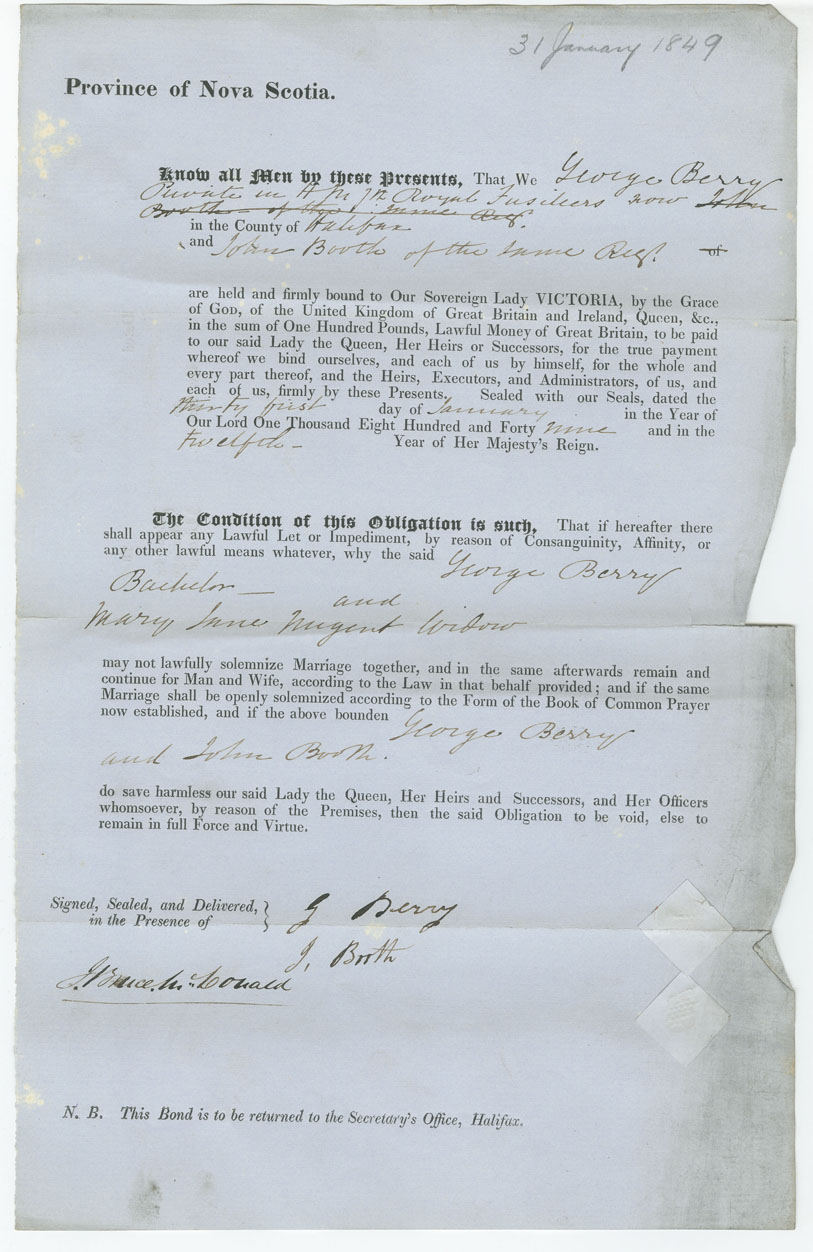 31 January 1849
Province of Nova Scotia.
Know all Men by these Presents, That We George Berry
Private in H M 7th Royal Fusiliers now John
Booth of the same Reg.
in the County of Halifax
and John Booth of the same Regt. of
are held and firmly bound to Our Sovereign Lady VICTORIA, by the Grace
of GOD, of the United Kingdom of Great Britain and Ireland, Queen, &c.,
in the sum of One Hundred Pounds, Lawful Money of Great Britain, to be paid
to our said Lady the Queen, Her Heirs or Successors, for the true payment
whereof we bind ourselves, and each of us by himself, for the whole and
every part thereof, and the Heirs, Executors, and Administrators, of us, and
each of us, firmly by these Presents. Sealed with our Seals, dated the
thirty first day of January in the Year of
Our Lord One Thousand Eight Hundred and Forty nine and in the
twelfth – Year of Her Majesty's Reign.
The Condition of this Obligation is such, That if hereafter there
shall appear any Lawful Let or Impediment, by reason of Consanguinity, Affinity, or
any other lawful means whatever, why the said George Berry
Bachelor — and
Mary Jane Nugent Widow
may not lawfully solemnize Marriage together, and in the same afterwards remain and
continue for Man and Wife, according to the Law in that behalf provided; and if the same
Marriage shall be openly solemnized according to the Form of the Book of Common Prayer
now established, and if the above bounden George Berry
and John Booth.
do save harmless our said Lady the Queen, Her Heirs and Successors, and Her Officers
whomsoever, by reason of the Premises, then the said Obligation to be void, else to
remain in full Force and Virtue.
Signed, Sealed, and Delivered,
in the Presence of
G Berry
J, Booth
J. Bruce. McDonald
N. B. This Bond is to be returned to the Secretary's Office, Halifax.